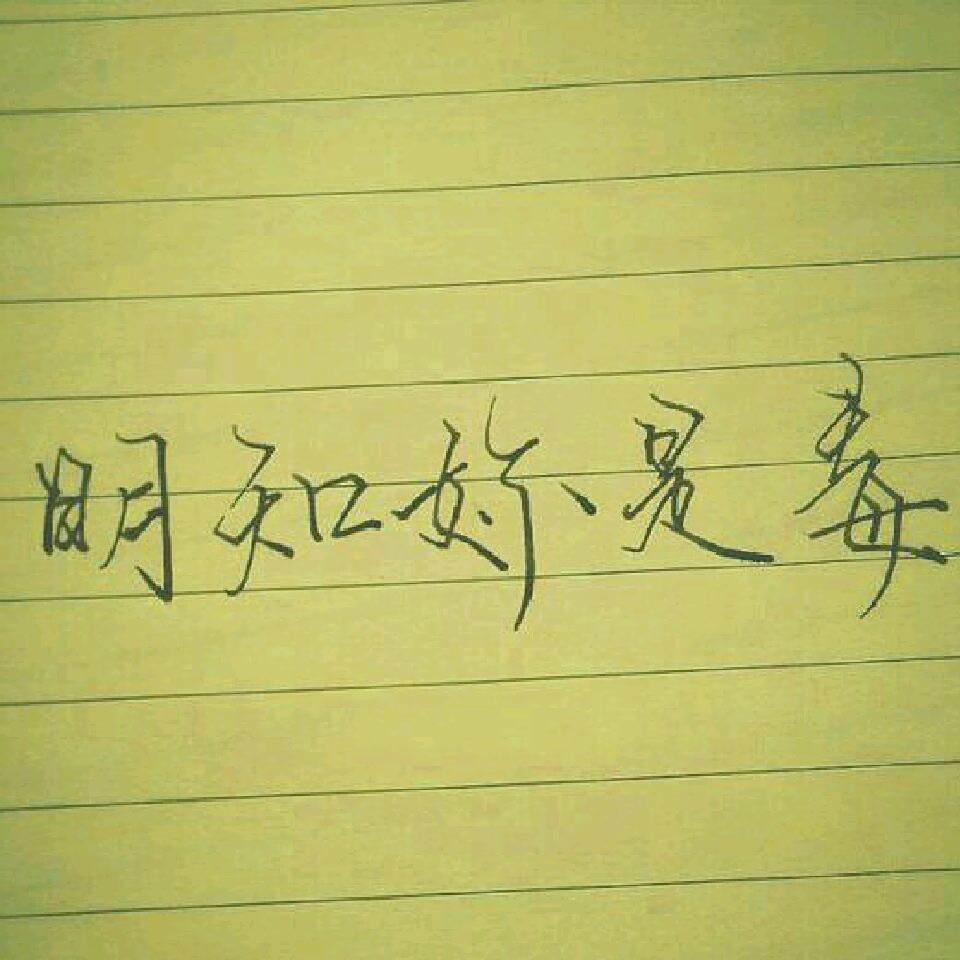 明知妳是毒